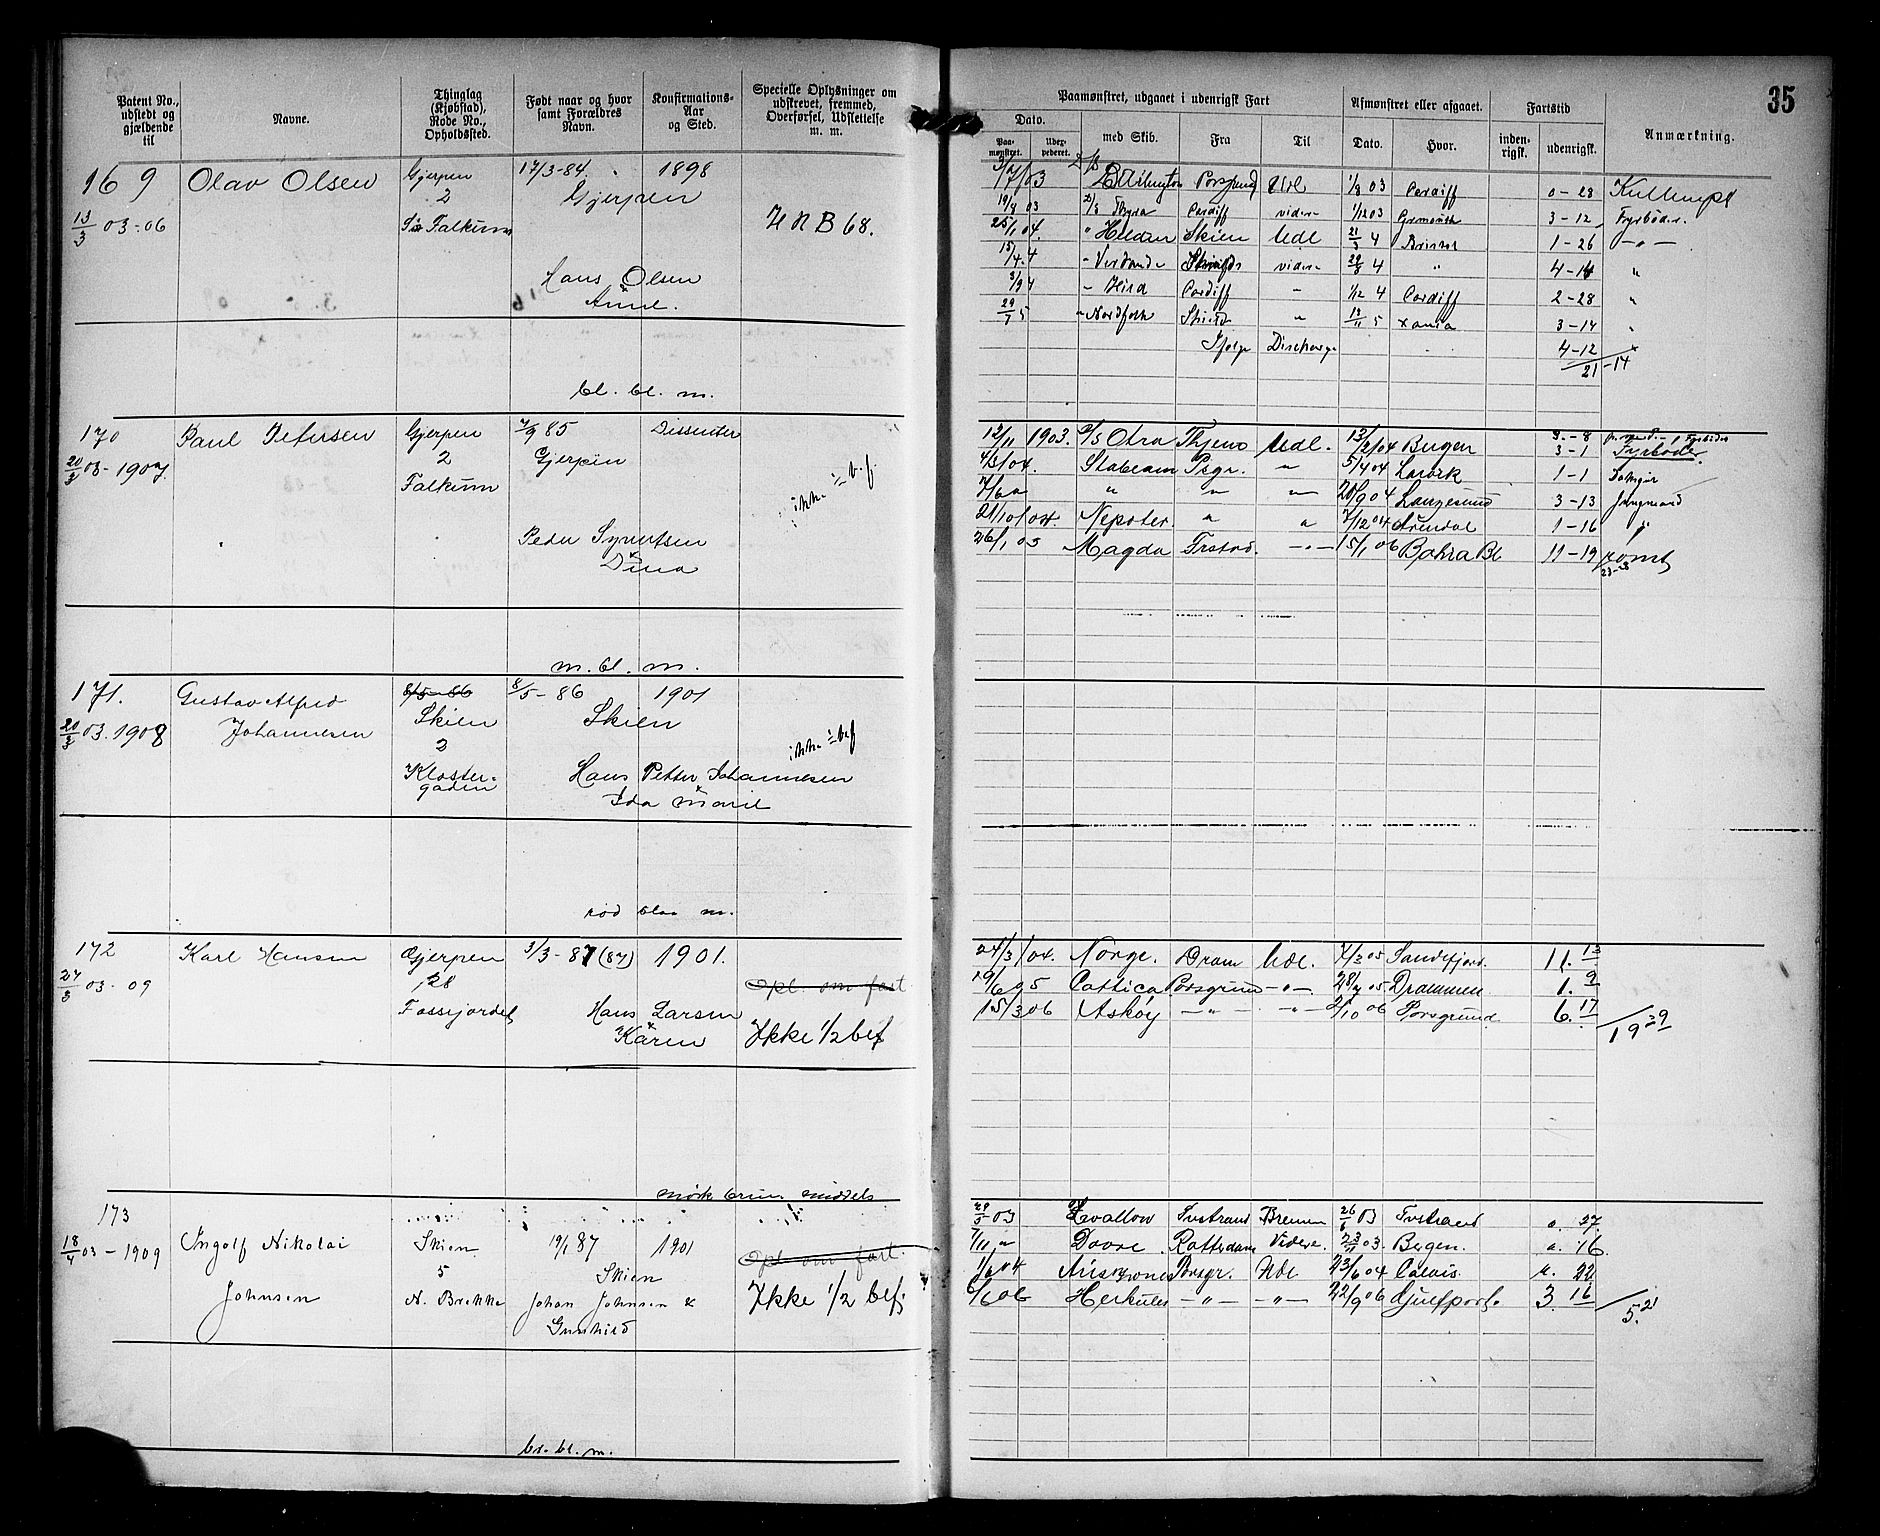 35
Patent No., udstedt og gjældende til
Navne.
Thinglag (Kjøbstad), Rode No., Opholdssted.
Født naar og hvor samt Forældres Navn.
Konfirmations-Aar og Sted.
Specielle Oplysninger om udskrevet, fremmed, Overførsel, Udslettelse m. m.
Paamønstret, udgaaet i udenrigsk Fart
Afmønstret eller afgaaet.
Fartstid
Anmærkning.
Dato.
Paa-mønstret.
Udex-pederet.
med Skib.
Fra
Til
Dato.
Hvor.
inden-rigsk.
udenrigsk.
169 Olav Olsen Gjerpen 17/3-84. 1898
2 Gjerpen
13/3 03-06 Falkum H N B 68.
Hans Olsen
&
Anne.
bl. bl. m.
7/03 Udl 1/8 03 Cardiff 0-28 Kullempr
19/8 03 Thyra Cardiff videre 1/12 03 Grimsuth 3-12 Fyrbøder.
25/1 04. " Heldin Skien Udl 21/3 4 Bristol 1-26 -"-
15/4.4 - Verdande videre 29/8 4 " 4-14 "
3/9 4 - Hird Cardiff - 1/12 4 Cardiff 2-28 "
29/7 5 - Nordfolk " 13/11 5 xania 3-14 "
Ifølge Discharge 4-12
21-14
170 Paul Petersen Gjerpen 7/9 85 Dissenter
20/3 03-1907. 2 Gjerpen
Falkum ikke i b.f.
Peder Syvertsen
&
Dina
m. bl. m.
12/11 1903. D/S Otra Udl. 13/2/04 Bergen 3-8
3-1 Fyrbøder
4/3/04. Stabeam Psgr. " 5/4 04 Larvik 1-1
7/6 " " " " 20/9 04 Langesund 3-13 Jungmand
21/10/04. Nepoter " " 7/12 04 Arendal 1-16 "
26/1 05 Magda Frstad. -"- 15/1 06 Bahia Bl 11-19 romt
23-28
171. Gustav Alfred 8/5-86 8/5-86 1901
20/3 03.1908 Johannesen Skien Skien
2 ikke i bef
Kloster-gaden Hans Petter Johannesen
&
Ida Marie
rød blaa m.
172 Karl Hansen Gjerpen 3/3-87 (87) 1901.
27/3 03-09 128 Opl. om fart
Fossejordet Hans Larsen
&
Karen Ikke 1/2 bef
mørk brun middels
24/3/04. Norge. Dram Udl. 7/3 05 Sandefjord. 11.13
19/6 05 Cattica Porsgrund -"- 28/7 05 Drammen 1.9
15/3 06 Askøy -"- -"- 2/10 06 Porsgrund 6.17
19 29
173 Ingolf Nikolai Skien 19/1 87 1901
18/4 03-1909 5 Skien Opl om fart.
Johnsen N. Brekke Johan Johnsen &
Gunhild Ikke 1/2 bef.
br. bl. m.
29/5 03 Svallow Tvstrand Bremen 26/6 03 Tvstrand 0. 27.
7/11 " Dovre. Rotterdam Videre. 23/11 03. Bergen. 0. 16.
1/6 04 Porsgr. Udl 23/6 04 Calais. 22
6/6 06 Herkules -"- -"- 22/9 06 Gulfport. 3. 16
5. 21